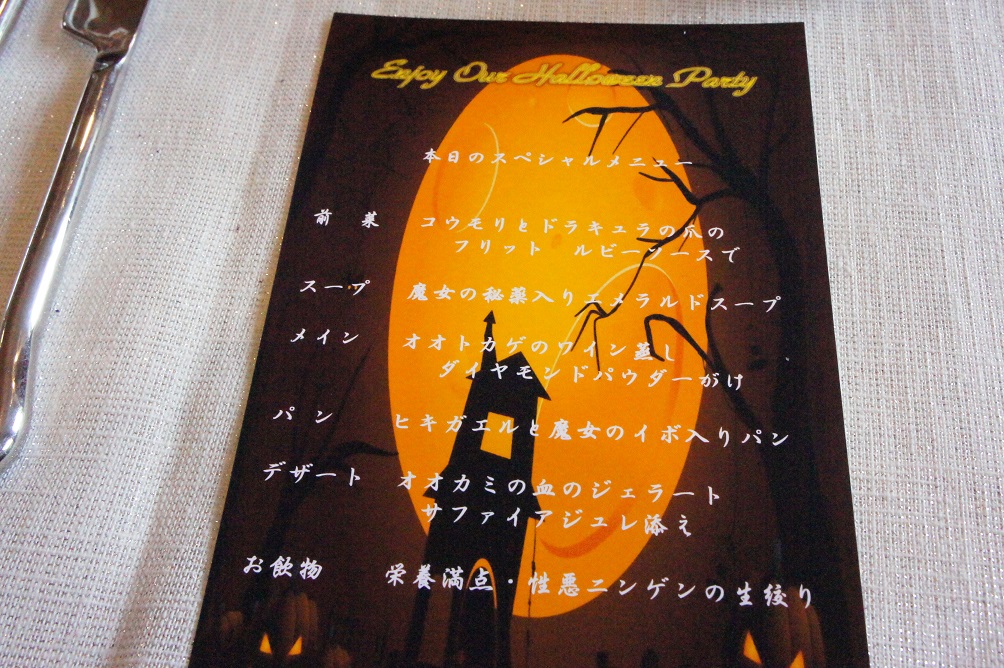 Enjoy Our Halloween Party
本日のスペシャルメニュー
前 菜 コウモリとドラキュラの爪の
フリット ルビーソースで
スープ 魔女の秘薬入りエメラルドスープ
メイン オオトカゲのワイン蒸し
ダイヤモンドパウダーがけ
パン ヒキガエルと魔女のイボ入りパン
デザート オオカミの血のジェラート
サファイアジュレ添え
お飲物 栄養満点・性悪ニンゲンの生絞り